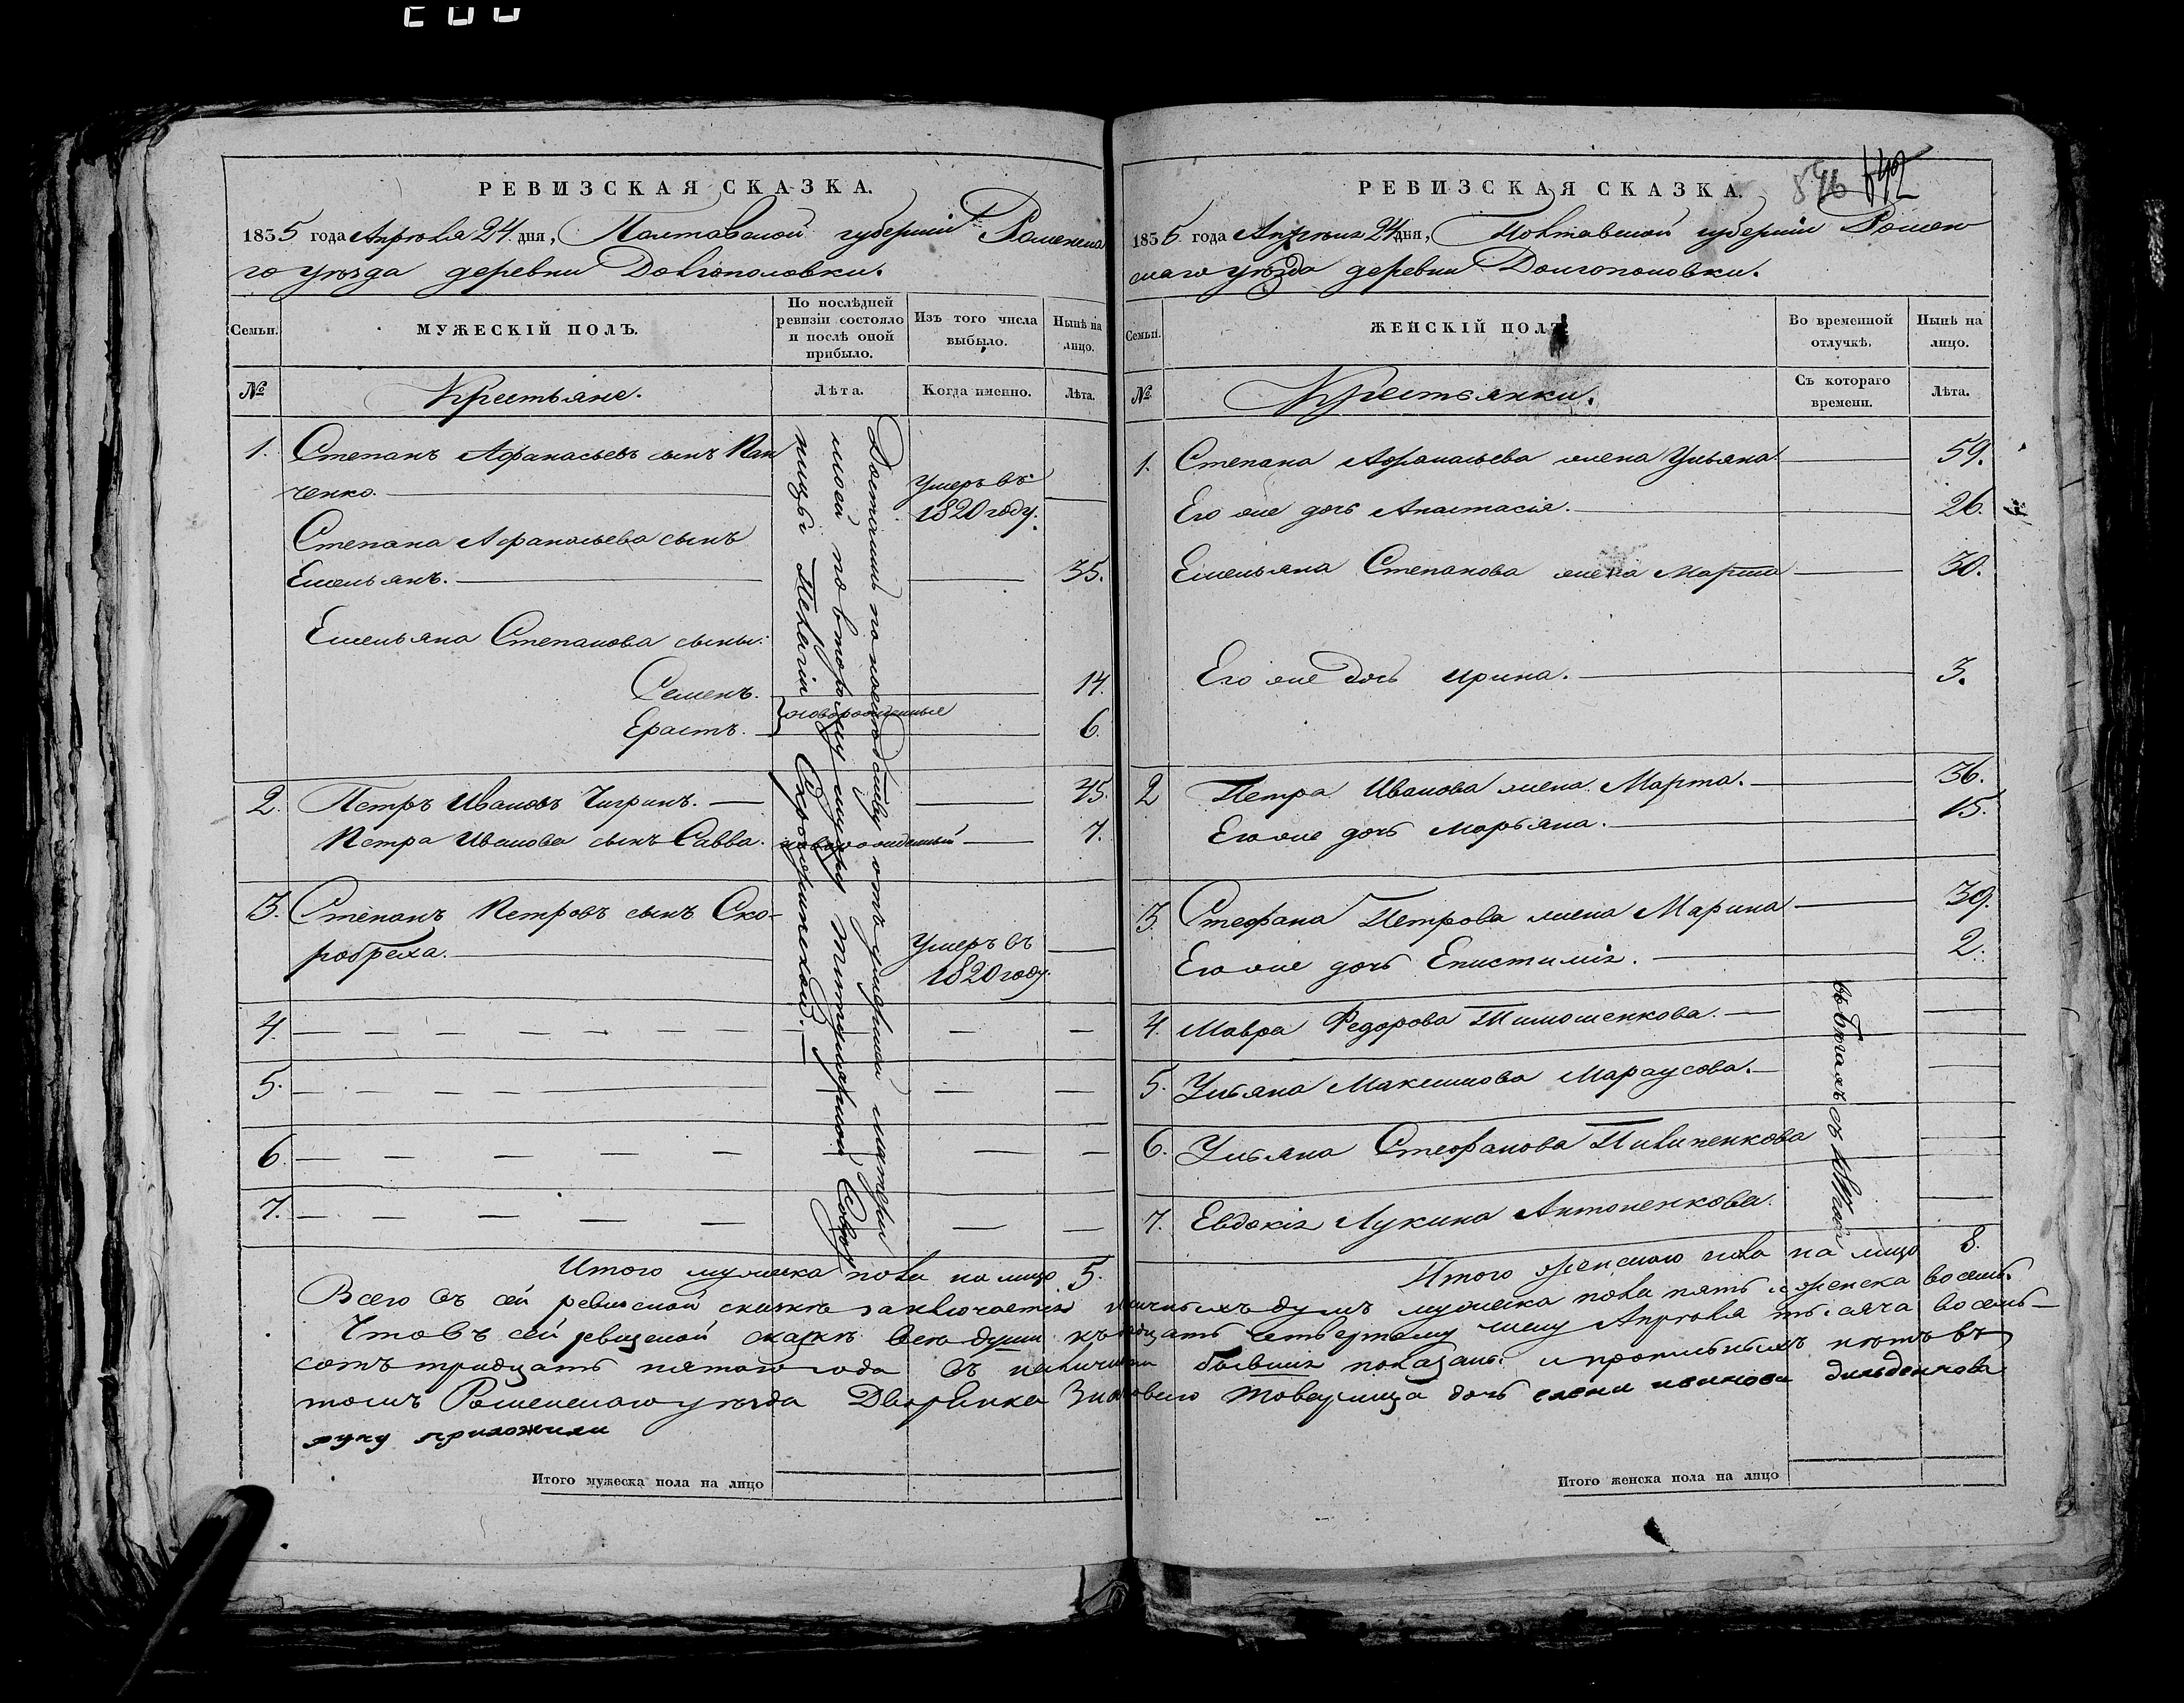 РЕВИЗСКАЯ СКАЗКА.
1835 года Апрѣля 24 дня, Полтавской губерніи Роменска
го уѣзда деревни Долгополовки.
Семьи.
МУЖЕСКІЙ ПОЛЪ.
По послѣдней ревизіи состояло и послѣ оной прибыло.
Изъ того числа выбыло.
Нынѣ на лицо.
№
Крестьяне.
Лѣта.
Когда именно.
Лѣта.
1. Степанъ Афанасьевъ сынъ Пан
ченко.
Умеръ въ
1820 году.
Степана Афанасьева сынъ
Емельянъ. 35.
Емельяна Степанова сыны:
Семенъ. 14.
новорожденные
Ерастъ. 6.
2. Петръ Ивановъ Чигринъ. 45.
Петра Иванова сынъ Савва. новорожденный 7.
3. Степанъ Петровъ сынъ Ско-
робреха.
Умеръ въ
1820 году.
4.
5.
6.
7.
Достались по наслѣдству отъ умершей матери
моей по второму мужу титулярной Совѣт
ницы Пелагіи
Итого мужеска пола на лицо 5.
РЕВИЗСКАЯ СКАЗКА.
846
1835 года Апрѣля 24 дня, Полтавской губерніи Ромен
скаго уѣзда деревни Долгополовки.
Семьи.
ЖЕНСКІЙ ПОЛЪ.
Во временной отлучкѣ.
Нынѣ на лицо.
№
Крестьянки.
Съ котораго времени.
Лѣта.
1. Степана Афанасьева жена Ульяна 59.
Его же дочь Анастасія. 26.
Емельяна Степанова жена Марфа 30.
Его же дочь Ирина. 3.
2 Петра Иванова жена Марта. 36.
Его же дочь Марьяна. 15.
3. Стефана Петрова жена Марина 39.
Его же дочь Епистимія. 2.
4. Мавра Федорова Тимошенкова.
5. Ульяна Максимова Мараусова.
6. Ульяна Стефанова Пилипенкова
7. Евдокія Лукина Антоненкова.
въ бѣгахъ съ
Итого женскаго пола на лицо 8.
Всего въ сей ревизской сказкѣ заключается наличныхъ душъ мужеска пола пять и женска восемь.
Что въ сей ревизской сказкѣ всѣ души къ двадцать четвертому числу Апрѣля тысяча восемь-
сотъ тридцать пятаго года въ наличности бывшія показаны и прописныхъ нѣтъ въ
томъ Роменскаго уѣзда Дворянка Значковаго Товарища дочь
руку приложила
Итого мужеска пола на лицо
Итого женска пола на лицо